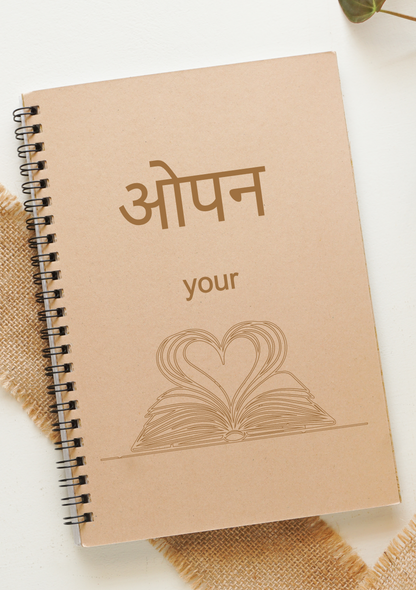 ओपन
your